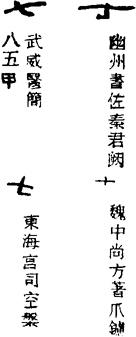 幽州書佐秦君闕
武威醫簡
八五甲
七
魏中尚方著爪
七
東海宮司空盤